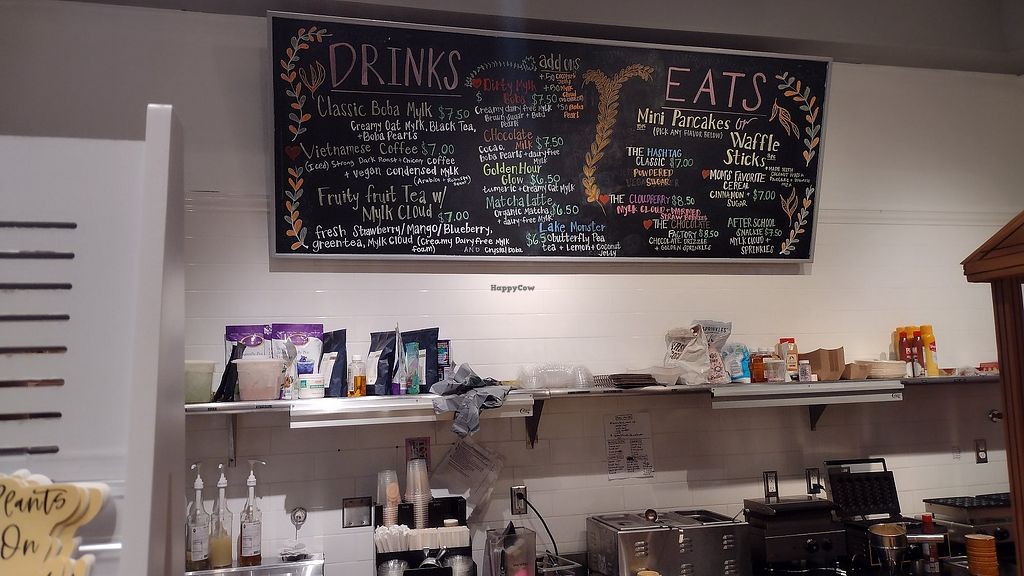 DRINKS
Classic Boba Mylk $7.50
Creamy Oat Mylk, Black Tea,
+ Boba Pearls
Vietnamese Coffee $7.00
(Iced) Strong Dark Roast + Chicory Coffee
+ Vegan Condensed Mylk
Fruity fruit Tea w/
Mylk Cloud $7.00
fresh Strawberry/Mango/Blueberry,
greentea, Mylk Cloud (Creamy Dairy free Mylk
foam) AND Crystal Boba
add ons
Dirty Mylk
Boba $7.50
Creamy dairy free Mylk
Brown Sugar + Boba
Pearls
Chocolate
Milk $7.50
Cocoa,
Boba Pearls + dairyfree
Mylk
Golden Hour
Glow $6.50
turmeric + Creamy Oat Mylk
Matcha Latte
Organic Matcha $6.50
+ dairy-free Mylk
Lake Monster
$6.50 Butterfly Pea
tea + Lemon + Coconut
Jelly
EATS
Mini Pancakes or
(PICK ANY FLAVOR BELOW)
Waffle
Sticks
THE HASHTAG
CLASSIC $7.00
POWDERED
SUGAR
THE CLOUDBERRY $8.50
MYLK CLOUD + WARMED
STRAWBERRIES
THE CHOCOLATE
FACTORY $8.50
CHOCOLATE DRIZZLE
+ GOLDEN SPRINKLES
MOM'S FAVORITE
CEREAL
CINNAMON + $7.00
SUGAR
AFTER SCHOOL
SNACKIE $7.50
MYLK CLOUD +
SPRINKLES
HappyCow
SPRINKLES
Plants
On